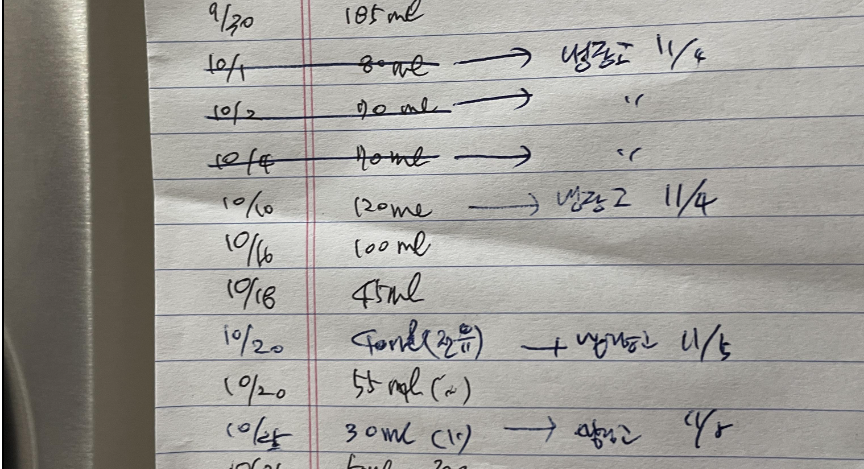 9/30 185ml
10/1 80ml → 냉장고 11/4
10/2 70ml → "
10/4 70ml → "
10/10 120ml → 냉장고 11/4
10/16 100ml
10/18 45ml
10/20 40ml (전유) → 냉장고 11/5
10/20 55ml (~)
30ml (")